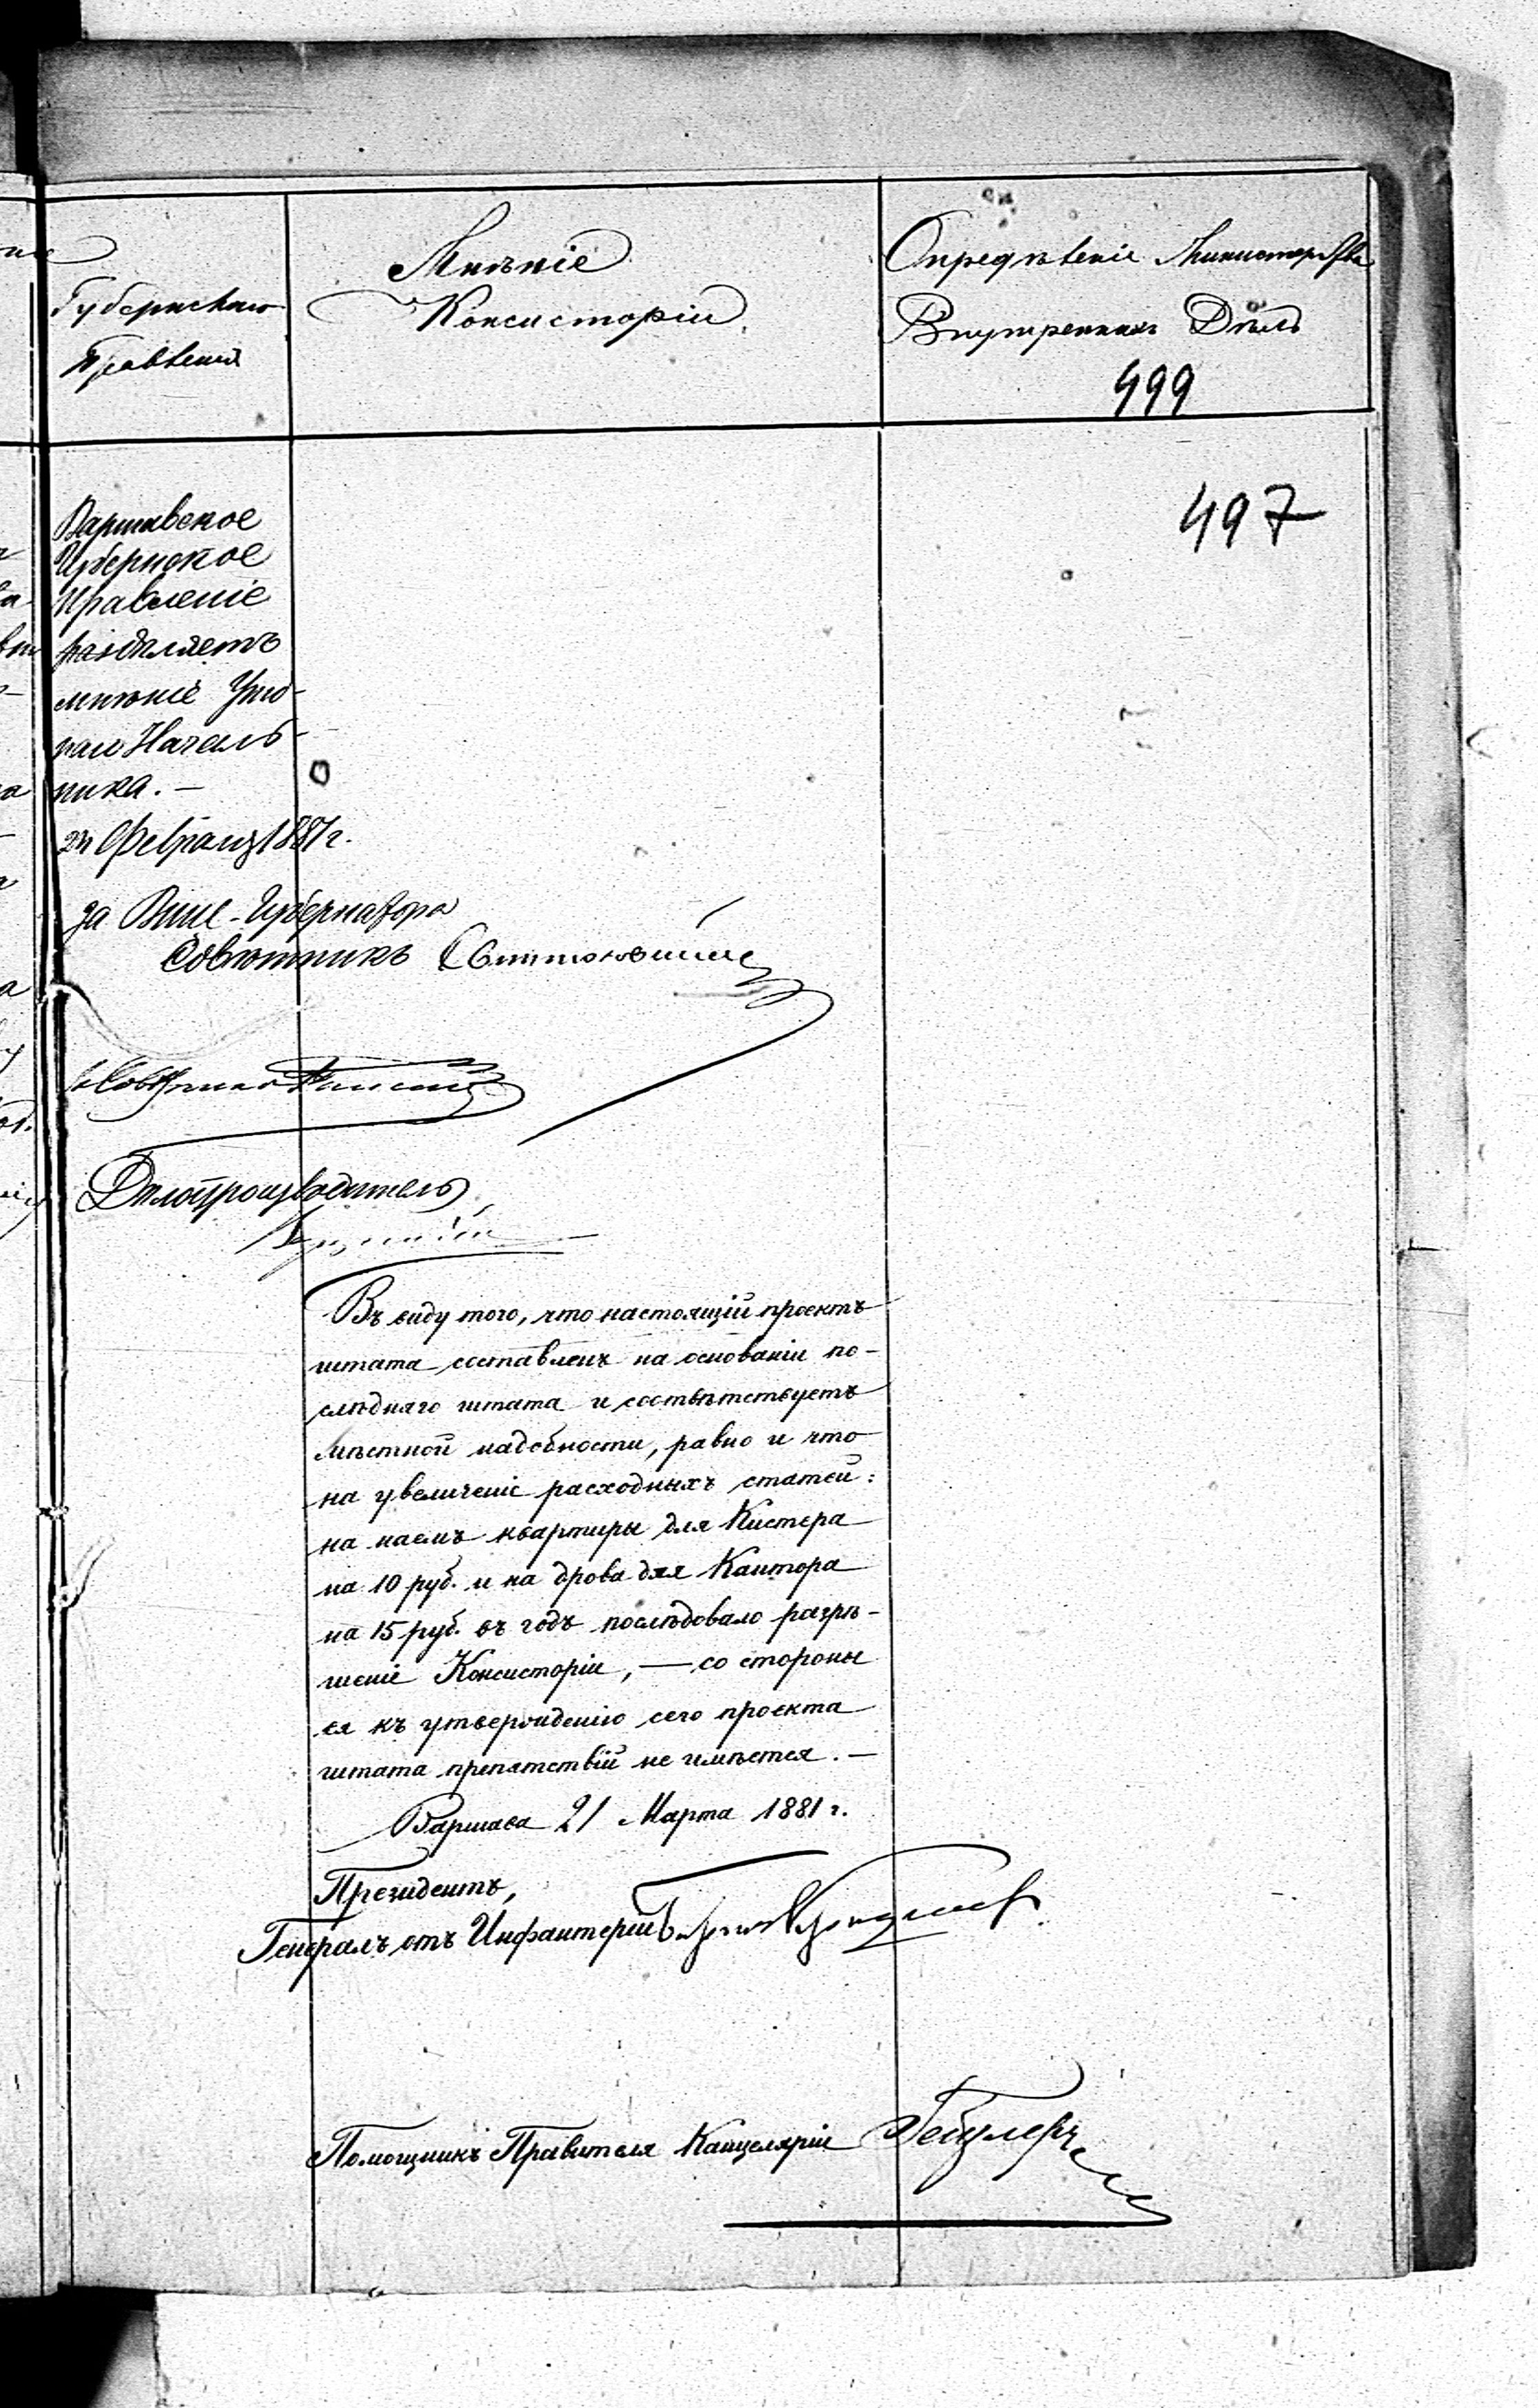 Губернскаго
Правленія
Мнѣніе
Консисторіи.
Опредѣленіе Министерства
Внутреннихъ Дѣлъ
499
497
Варшавское
Губернское
Правленіе
раздѣляетъ
мнѣніе Уѣзд-
наго Началь-
ника. —
24 Февраля 1881 г.
за Вице-Губернатора
Совѣтникъ
Дѣлопроизводитель
Въ виду того, что настоящій проектъ
штата составленъ на основаніи по-
слѣдняго штата и соотвѣтствуетъ
мѣстной надобности, равно и что
на увеличеніе расходныхъ статей:
на наемъ квартиры для Кистера
на 10 руб. и на дрова для Кантора
на 15 руб. въ годъ послѣдовало разрѣ-
шеніе Консисторіи, — со стороны
ея къ утвержденію сего проекта
штата препятствій не имѣется. —
Варшава 21 Марта 1881 г.
Президентъ,
Генералъ отъ Инфантеріи
Помощникъ Правителя Канцеляріи